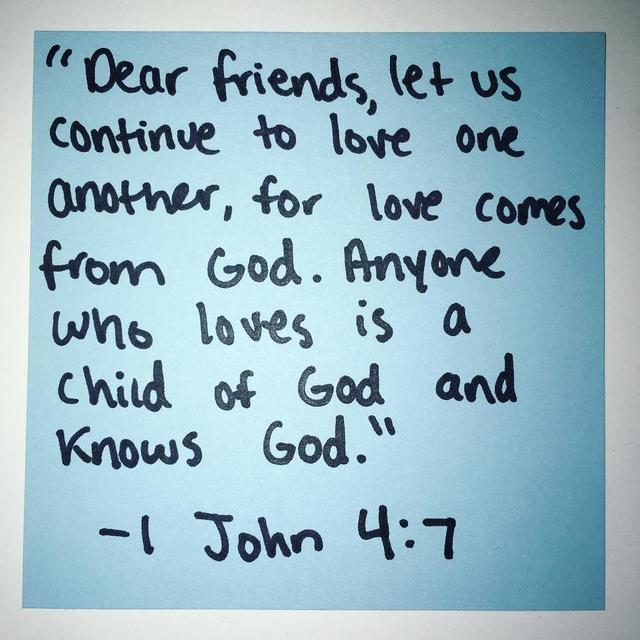 "Dear friends, let us
continue to love one
another, for love comes
from God. Anyone
who loves is a
child of God and
knows God."
-1 John 4:7